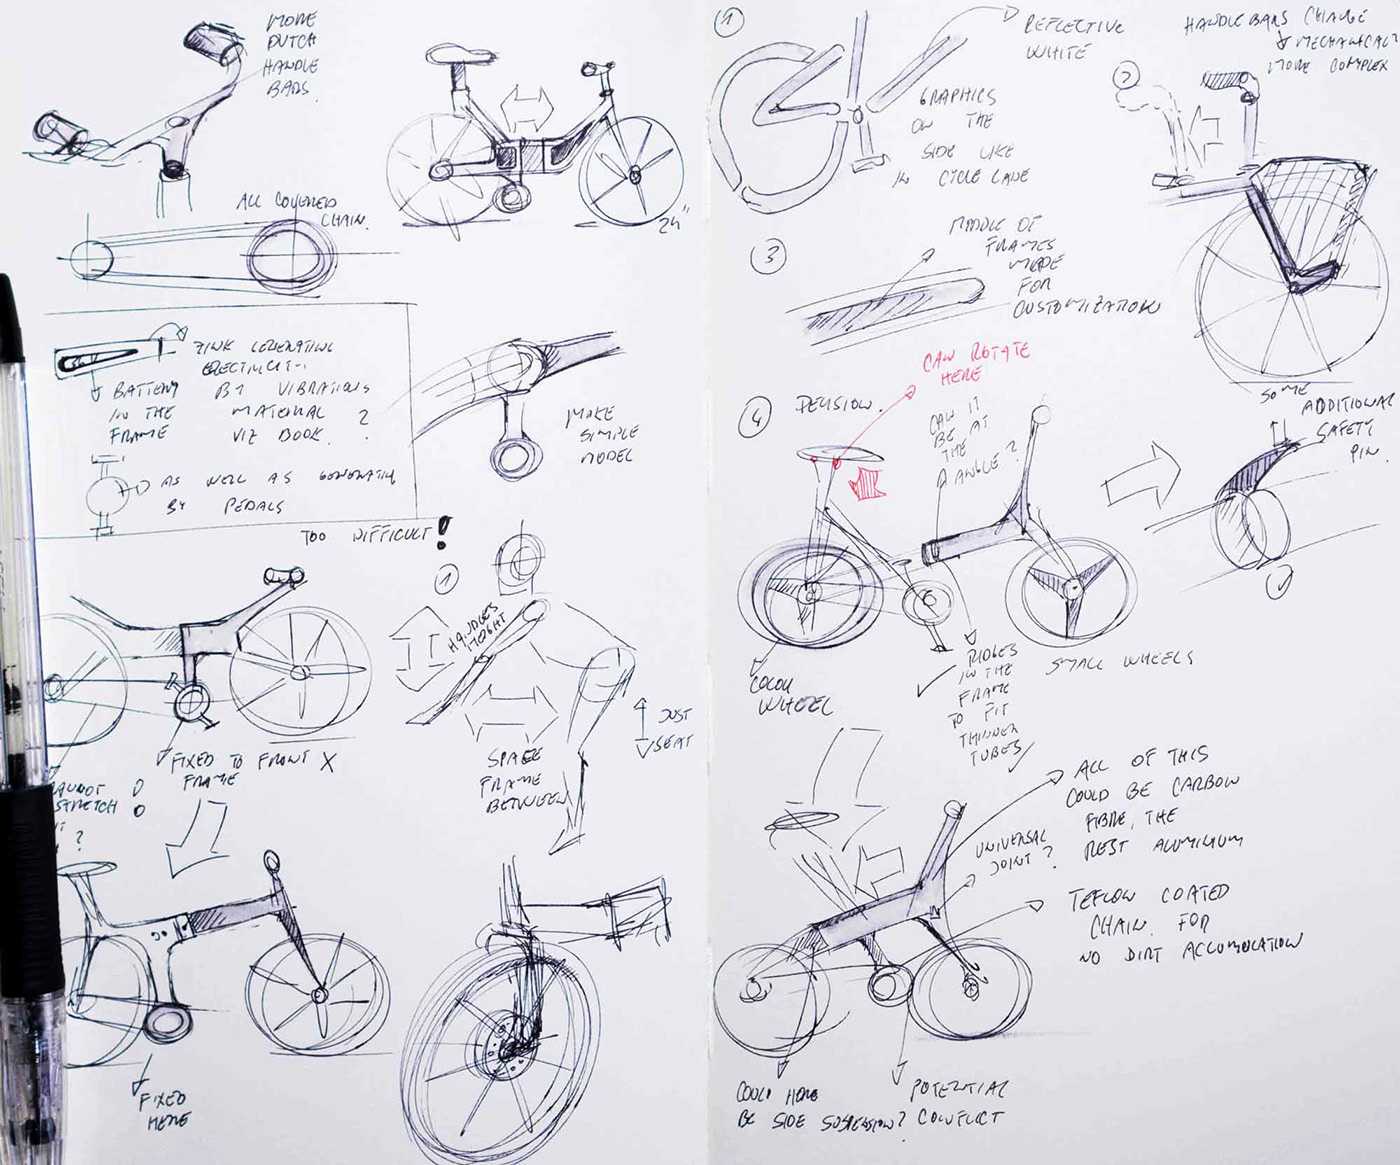 MORE
DUTCH
HANDLE
BARS.
ALL COVERED
CHAIN.
24"
BATTERY
IN THE
FRAME
ZINK GENERATING
BY VIBRATIONS
MATERIAL ?
VIZ BOOK.
AS WELL AS GENERATING
BY PEDALS
TOO DIFFICULT!
MAKE
SIMPLE
MODEL
FIXED TO FRONT X
FRAME
STRETCH
?
FIXED
HERE
1
HANDLES
HEIGHT
SPACE
FRAME
BETWEEN
JUST
SEAT
1
REFLECTIVE
WHITE
GRAPHICS
ON THE
SIDE LIKE
IN CYCLE LANE
2
HANDLE BARS CHANGE
MECHANICAL?
MORE COMPLEX
3
MIDDLE OF
FRAMES
MADE
FOR
CUSTOMIZATION
CAN ROTATE
HERE
4
CAN IT
BE AT
THE
ANGLE?
SOME
ADDITIONAL
SAFETY
PIN.
COLOUR
WHEEL
RIDGES
IN THE
FRAME
TO FIT
THINNER
TUBES
SMALL WHEELS
ALL OF THIS
COULD BE CARBON
FIBRE, THE
REST ALUMINIUM
UNIVERSAL
JOINT?
TEFLON COATED
CHAIN. FOR
NO DIRT ACCUMULATION
COULD HERE
BE SIDE SUSPENSION?
POTENTIAL
CONFLICT